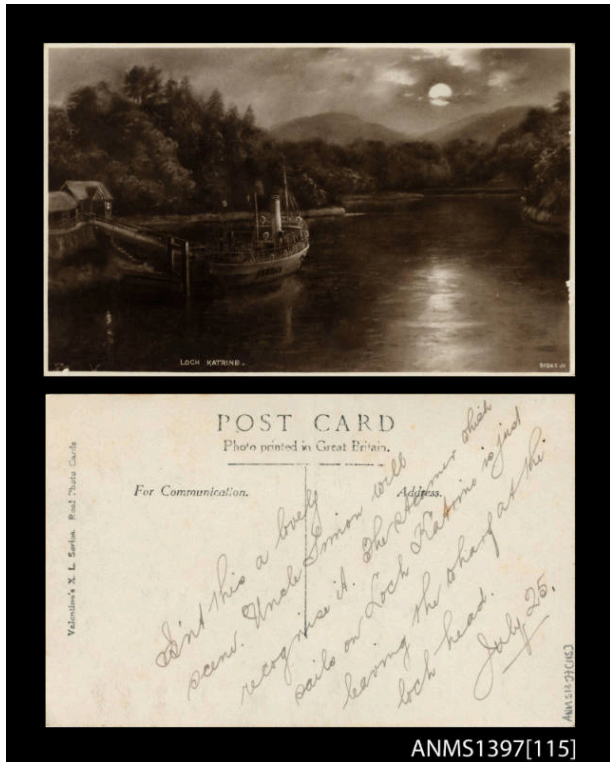 LOCH KATRINE.
POST CARD
Photo printed in Great Britain.
For Communication.
Address.
Valentine's X. L. Series. Real Photo Cards
Isn't this a lovely
scene. Uncle Simon will
recognise it. The steamer which
sails on Loch Katrine is just
leaving the wharf at the
loch head.
July 25.
ANMS1397[115]
ANMS1397[115]